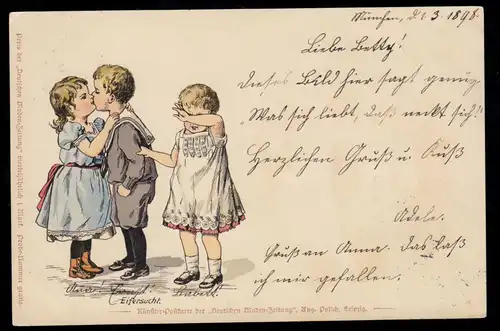 München, d. 3. 1898.
Liebe Betty!
Dieses Bild hier sagt genug
"Was sich liebt, das neckt sich!"
Herzlichen Gruß u. Kuß
Adele.
Gruß an Anna. Das
ich mir gefallen.
Eifersucht.
Künstler-Postkarte der „Deutschen Moden-Zeitung“, Aug. Polich, Leipzig.
Preis der „Deutschen Moden-Zeitung“ vierteljährlich 1 Mark. Probe-Nummer gratis.